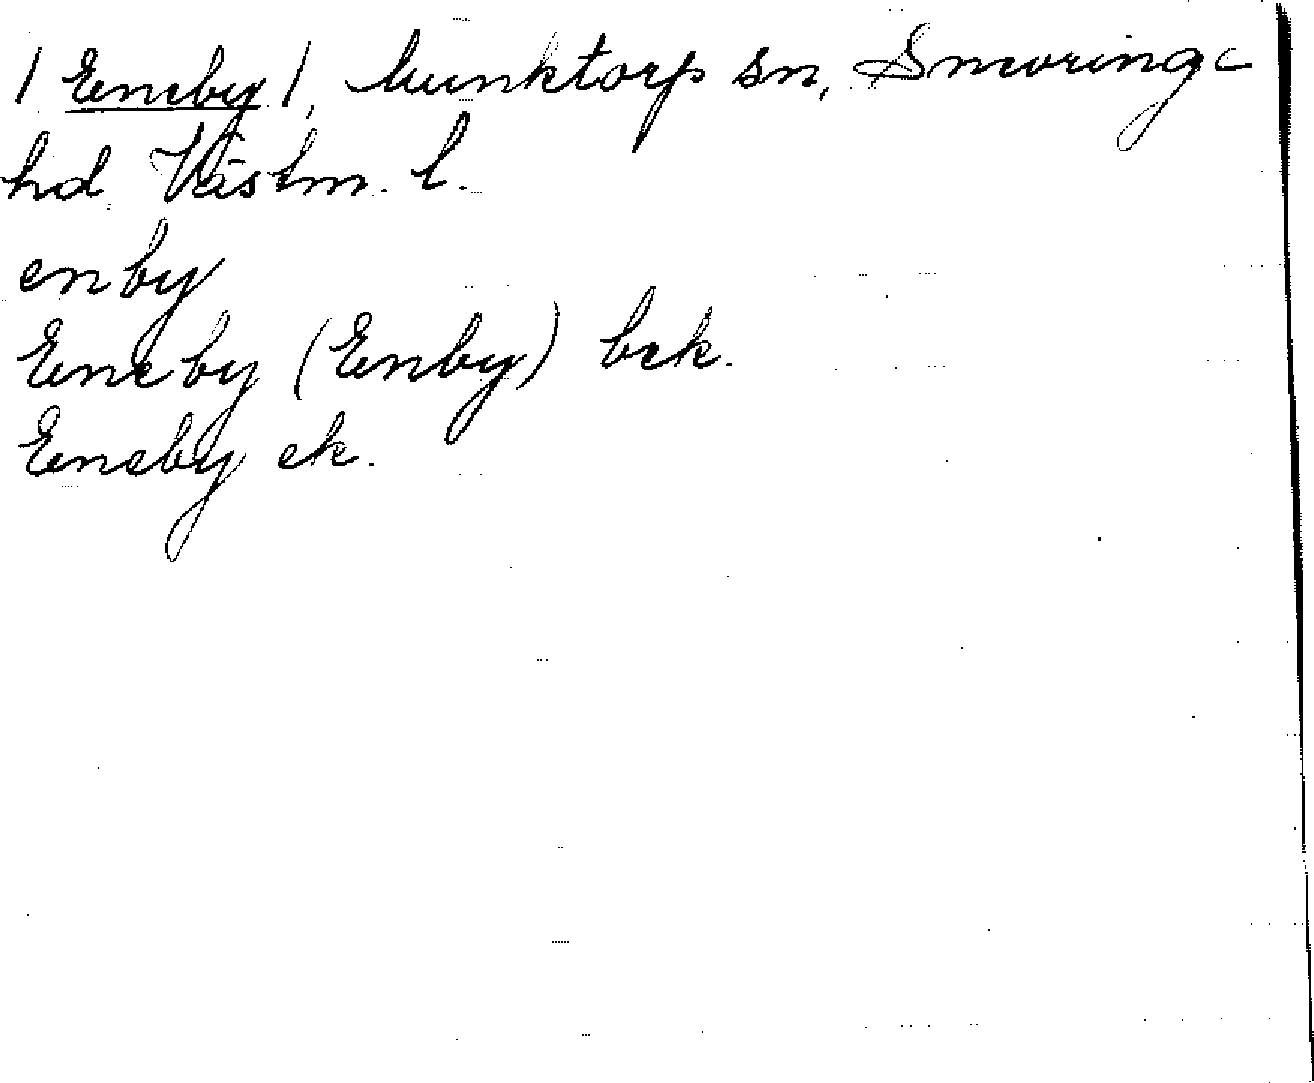 / Eneby /, Munktorp sn, Snevringe
hd Västm. l.
enby
Eneby (Enby) bek.
Eneby ek.